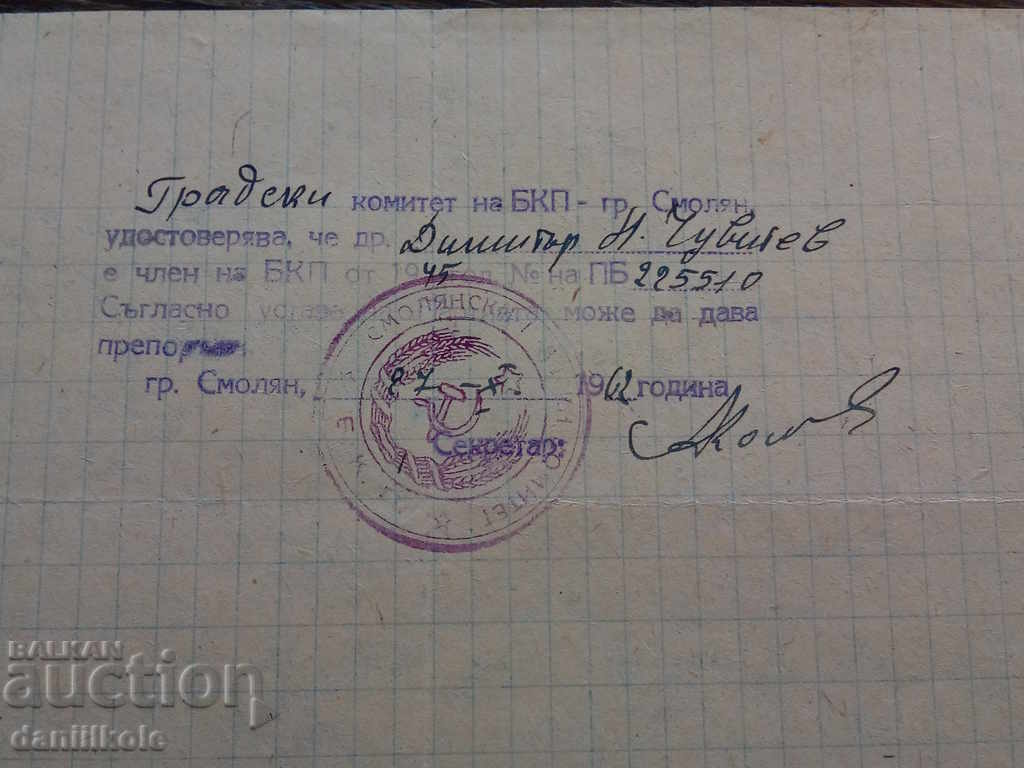 Градски комитет на БКП - гр. Смолян,
удостоверява, че др. Димитър Н. Чувитев
е член на БКП от 1945 год. № на ПБ 225510
Съгласно устава може да дава
гр. Смолян, 27 1962 година
Секретар:
СМОЛЯНСКИ
КОМИТЕТ
BALKAN
auction
daniilkole